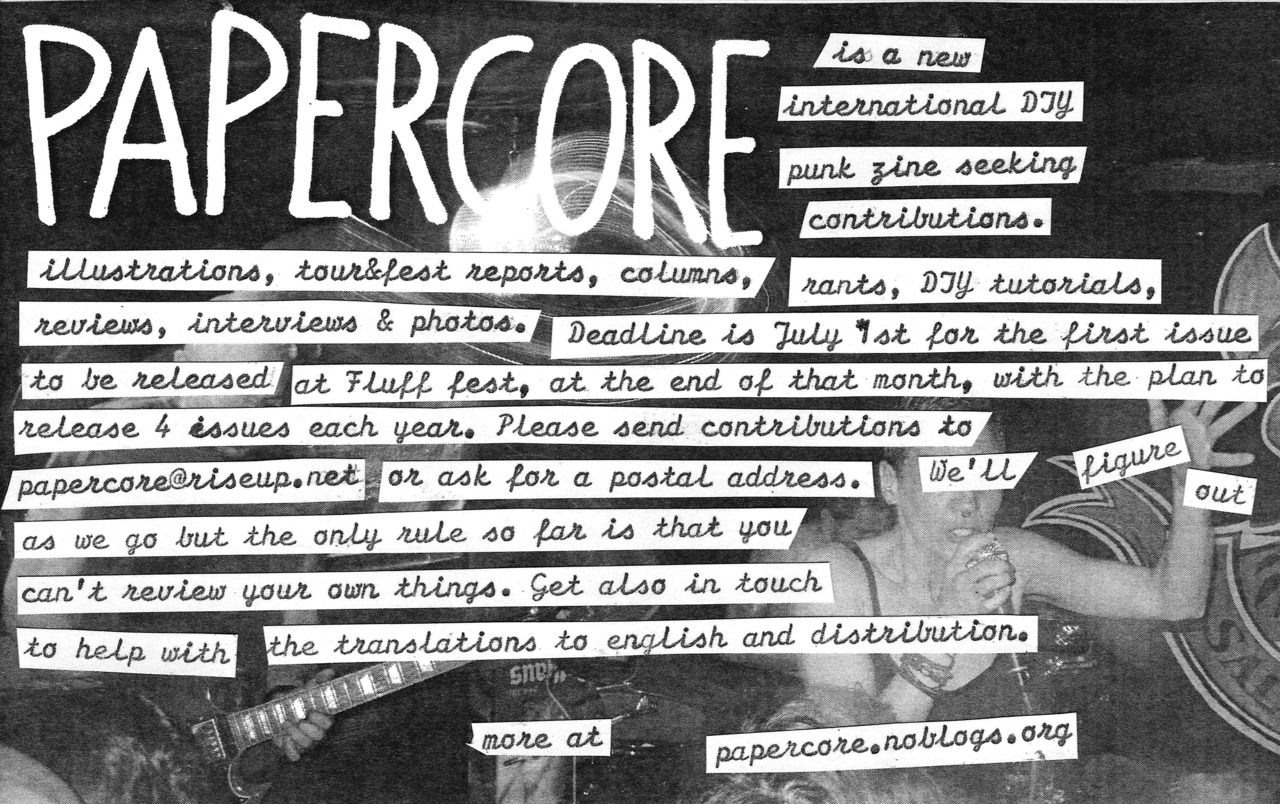 PAPERCORE
is a new
international DIY
punk zine seeking
contributions.
illustrations, tour&fest reports, columns, rants, DIY tutorials,
reviews, interviews & photos. Deadline is July 1st for the first issue
to be released at Fluff fest, at the end of that month, with the plan to
release 4 issues each year. Please send contributions to
papercore@riseup.net or ask for a postal address. We'll figure out
as we go but the only rule so far is that you
can't review your own things. Get also in touch
to help with the translations to english and distribution.
more at papercore.noblogs.org